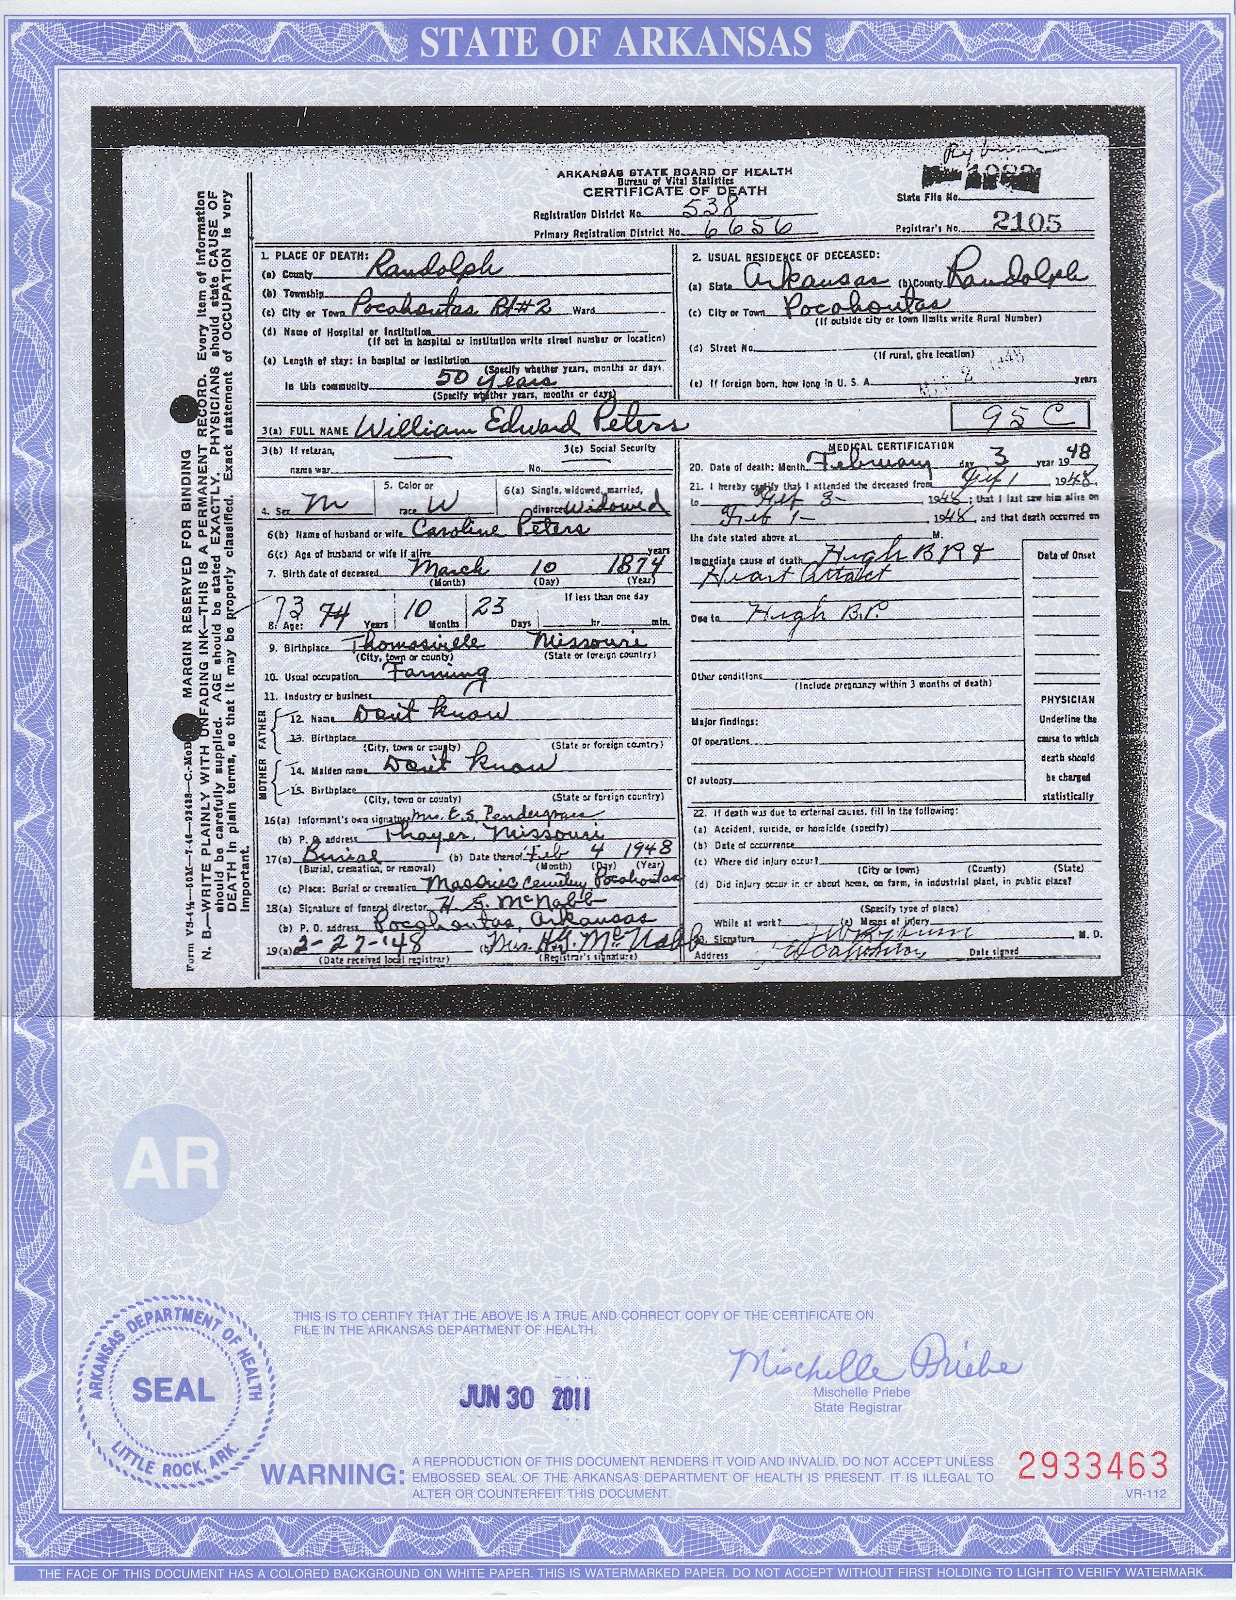 STATE OF ARKANSAS
ARKANSAS STATE BOARD OF HEALTH
Bureau of Vital Statistics
CERTIFICATE OF DEATH
Registration District No. 538
Primary Registration District No. 6656
State File No.
Registrar's No. 2105
MARGIN RESERVED FOR BINDING
N. B.—WRITE PLAINLY WITH UNFADING INK—THIS IS A PERMANENT RECORD. Every item of information
should be carefully supplied. AGE should be stated EXACTLY. PHYSICIANS should state CAUSE OF
DEATH in plain terms, so that it may be properly classified. Exact statement of OCCUPATION is very
important.
1. PLACE OF DEATH:
(a) County Randolph
(b) Township
(c) City or Town Pocahontas Rt#2 Ward
(d) Name of Hospital or Institution
(If not in hospital or institution write street number or location)
(e) Length of stay: in hospital or institution
(Specify whether years, months or days)
In this community 50 years
(Specify whether years, months or days)
2. USUAL RESIDENCE OF DECEASED:
(a) State Arkansas (b) County Randolph
(c) City or Town Pocahontas
(If outside city or town limits write Rural Number)
(d) Street No.
(If rural, give location)
(e) If foreign born, how long in U. S. A. years
3(a) FULL NAME William Edward Peters
95 C
3(b) If veteran,
name war
3(c) Social Security
No.
4. Sex M
5. Color or
race W
6(a) Single, widowed, married,
divorced Widowed
6(b) Name of husband or wife Caroline Peters
6(c) Age of husband or wife if alive years
7. Birth date of deceased March 10 1874
(Month) (Day) (Year)
8. Age: 73 74 Years 10 Months 23 Days
If less than one day
hr. min.
9. Birthplace Thomasville Missouri
(City, town or county) (State or foreign country)
10. Usual occupation Farming
11. Industry or business
FATHER
12. Name Don't Know
13. Birthplace
(City, town or county) (State or foreign country)
MOTHER
14. Maiden name Don't Know
15. Birthplace
(City, town or county) (State or foreign country)
16(a) Informant's own signature Mrs. E.S. Pendergrass
(b) P. O. address Thayer, Missouri
17(a) Burial (b) Date thereof Feb 4 1948
(Burial, cremation, or removal) (Month) (Day) (Year)
(c) Place: Burial or cremation Masonic Cemetery Pocahontas
18(a) Signature of funeral director H. S. McNabb
(b) P. O. address Pocahontas, Arkansas
19(a) 2-27-'48 (b) Mrs. H.S. McNabb
(Date received local registrar) (Registrar's signature)
MEDICAL CERTIFICATION
20. Date of death: Month February day 3 year 1948
21. I hereby certify that I attended the deceased from Feb 1 1948,
to Feb 3- 1948; that I last saw him alive on
Feb 1- 1948, and that death occurred on
the date stated above at M.
Immediate cause of death High B P. &
Heart Attack
Due to High B.P.
Date of Onset
Other conditions
(Include pregnancy within 3 months of death)
Major findings:
Of operations
Of autopsy
PHYSICIAN
Underline the
cause to which
death should
be charged
statistically
22. If death was due to external causes, fill in the following:
(a) Accident, suicide, or homicide (specify)
(b) Date of occurrence
(c) Where did injury occur?
(City or town) (County) (State)
(d) Did injury occur in or about home, on farm, in industrial plant, in public place?
(Specify type of place)
While at work? (e) Means of injury
Signature M. D.
Address Date signed
AR
ARKANSAS DEPARTMENT OF HEALTH
SEAL
LITTLE ROCK, ARK.
THIS IS TO CERTIFY THAT THE ABOVE IS A TRUE AND CORRECT COPY OF THE CERTIFICATE ON
FILE IN THE ARKANSAS DEPARTMENT OF HEALTH.
JUN 30 2011
Mischelle Priebe
Mischelle Priebe
State Registrar
WARNING: A REPRODUCTION OF THIS DOCUMENT RENDERS IT VOID AND INVALID. DO NOT ACCEPT UNLESS
EMBOSSED SEAL OF THE ARKANSAS DEPARTMENT OF HEALTH IS PRESENT. IT IS ILLEGAL TO
ALTER OR COUNTERFEIT THIS DOCUMENT.
2933463
VR-112
THE FACE OF THIS DOCUMENT HAS A COLORED BACKGROUND ON WHITE PAPER. THIS IS WATERMARKED PAPER. DO NOT ACCEPT WITHOUT FIRST HOLDING TO LIGHT TO VERIFY WATERMARK.